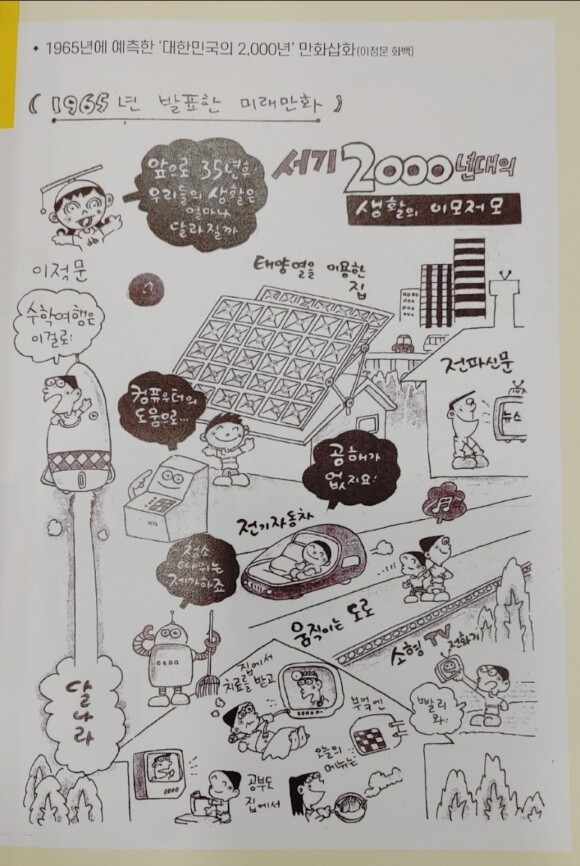 • 1965년에 예측한 '대한민국의 2,000년' 만화삽화(이정문 화백)
《 1965년 발표한 미래만화 》
앞으로 35년후
우리들의 생활은
얼마나
달라질까
서기 2000년대의
생활의 이모저모
이정문
태양열을 이용한
집
수학여행은
이걸로!
전파신문
뉴스
컴퓨우터의
도움으로...
공해가
없지요!
전기자동차
청소
따위는
제가하죠
움직이는 도로
소형 TV 전화기
빨리
와!
달나라
집에서
치료를 받고
부엌엔
오늘의
메뉴는
공부도
집에서